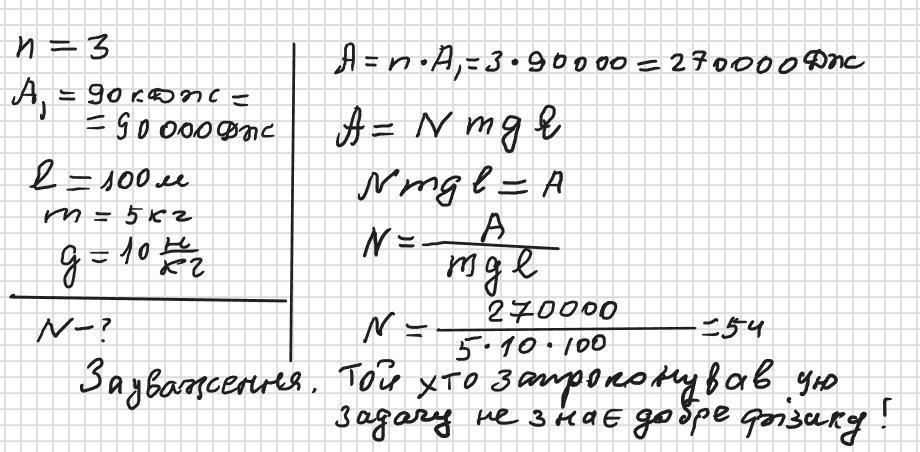 n = 3
A₁ = 90 кДж =
= 90 000 Дж
l = 100 м
m = 5 кг
g = 10 н/кг
N – ?
A = n · A₁ = 3 · 90000 = 270000 Дж
A = N m g l
N m g l = A
N = A / m g l
N = 270000 / 5 · 10 · 100 = 54
Зауваження. Той хто запроконував цю
задачу не знає добре фізику!